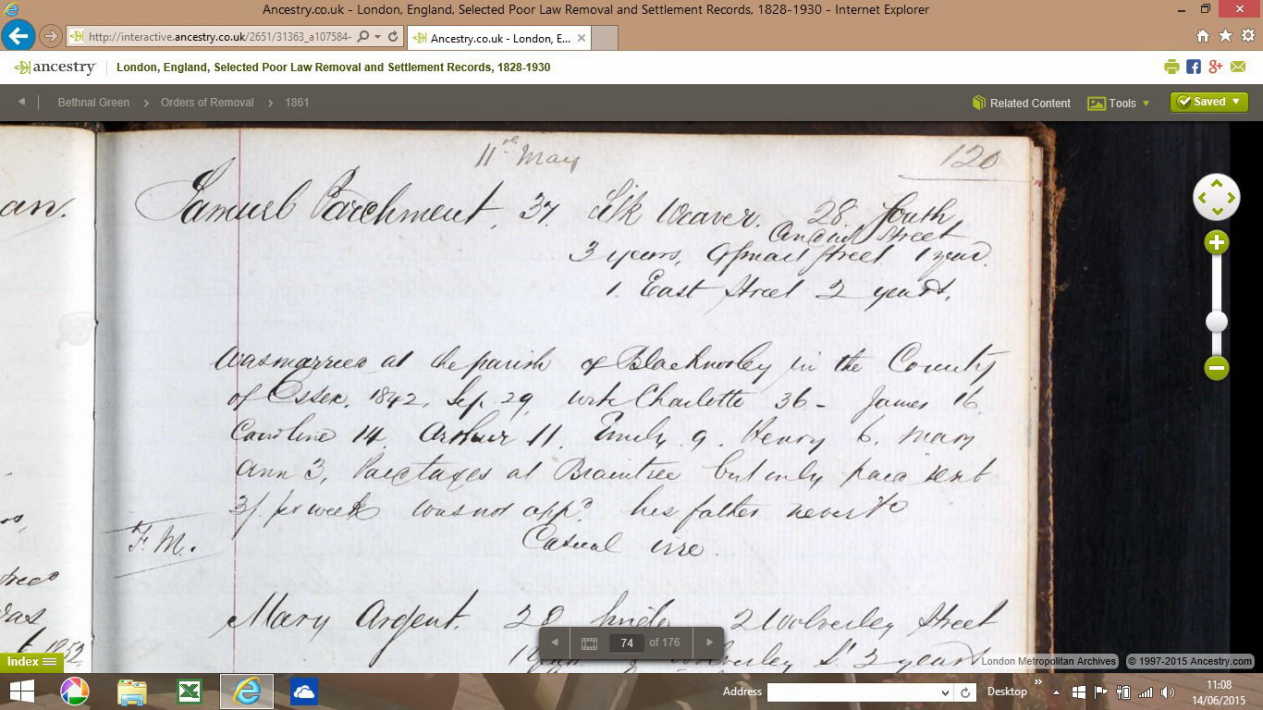 Ancestry.co.uk - London, England, Selected Poor Law Removal and Settlement Records, 1828-1930 - Internet Explorer
http://interactive.ancestry.co.uk/2651/31363_a107584-
Ancestry.co.uk - London, E...
ancestry
London, England, Selected Poor Law Removal and Settlement Records, 1828-1930
Bethnal Green
Orders of Removal
1861
Related Content
Tools
Saved
11th May
120
an.
Samuel Parchment, 37, Silk Weaver. 28. South
street
3 years, street 1 year.
1. East Street 2 years.
Was married at the parish of Blacknotley in the County
of Essex, 1842, Sep. 29, with Charlotte 36 - James 16.
Caroline 14. Arthur 11. Emily 9. Henry 6. Mary
Ann 3, at Braintree but only paid rent
3/. per week was not app? his father never do
F. M.
Casual
Mary Argent. 28 2 Wolverley Street
Wolverley St 3 years
1852
74
of 176
Index
London Metropolitan Archives
© 1997-2015 Ancestry.com
Address
Desktop
11:08
14/06/2015